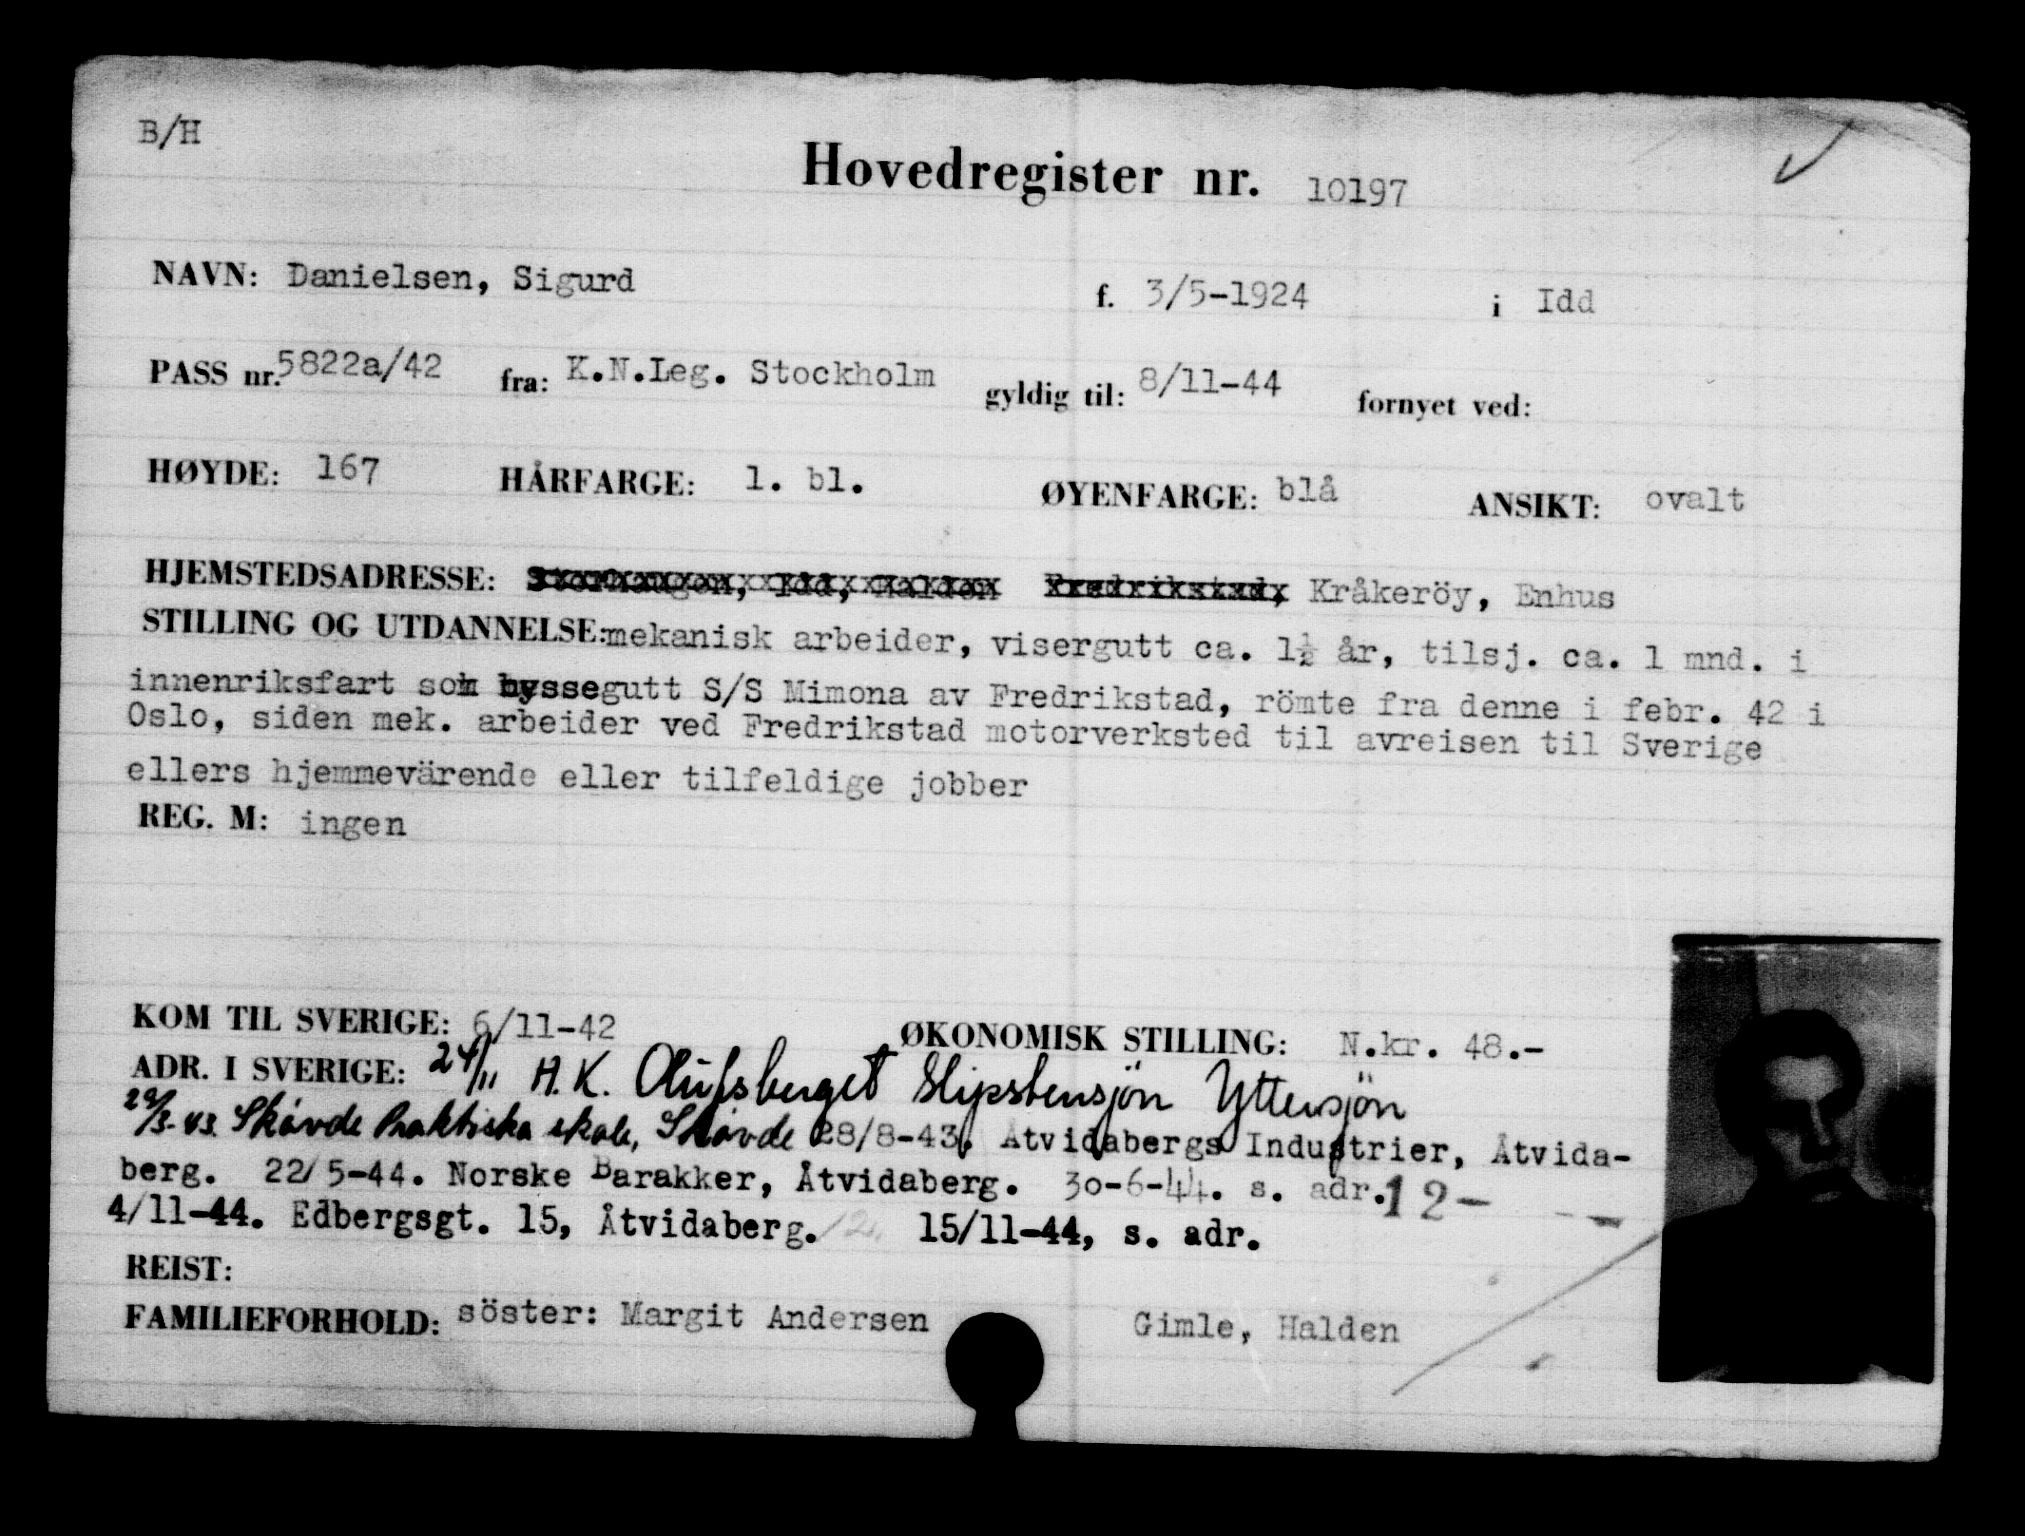 B/H
Hovedregister nr. 10197
NAVN: Danielsen, Sigurd f. 3/5-1924 i Idd
PASS nr. 5822a/42 fra: K.N.Leg. Stockholm gyldig til: 8/11-44 fornyet ved:
HØYDE: 167 HÅRFARGE: l. bl. ØYENFARGE: blå ANSIKT: ovalt
HJEMSTEDSADRESSE: Storhaugen, Idd, Halden Fredrikstad, Kråkeröy, Enhus
STILLING OG UTDANNELSE: mekanisk arbeider, visergutt ca. 1½ år, tilsj. ca. 1 mnd. i
innenriksfart som byssegutt S/S Mimona av Fredrikstad, römte fra denne i febr. 42 i
Oslo, siden mek. arbeider ved Fredrikstad motorverksted til avreisen til Sverige
ellers hjemmevärende eller tilfeldige jobber
REG. M: ingen
KOM TIL SVERIGE: 6/11-42 ØKONOMISK STILLING: N.kr. 48.-
ADR. I SVERIGE: 24/11 H.K. Olufsberget Slipstensjön Yttersjön
29/3-43. Skövde Praktiska skole, Skövde 28/8-43. Åtvidabergs Industrier, Åtvida-
berg. 22/5-44. Norske Barakker, Åtvidaberg. 30-6-44. s. adr. 12-
4/11-44. Edbergsgt. 15, Åtvidaberg. 15/11-44, s. adr.
REIST:
FAMILIEFORHOLD: söster: Margit Andersen Gimle, Halden